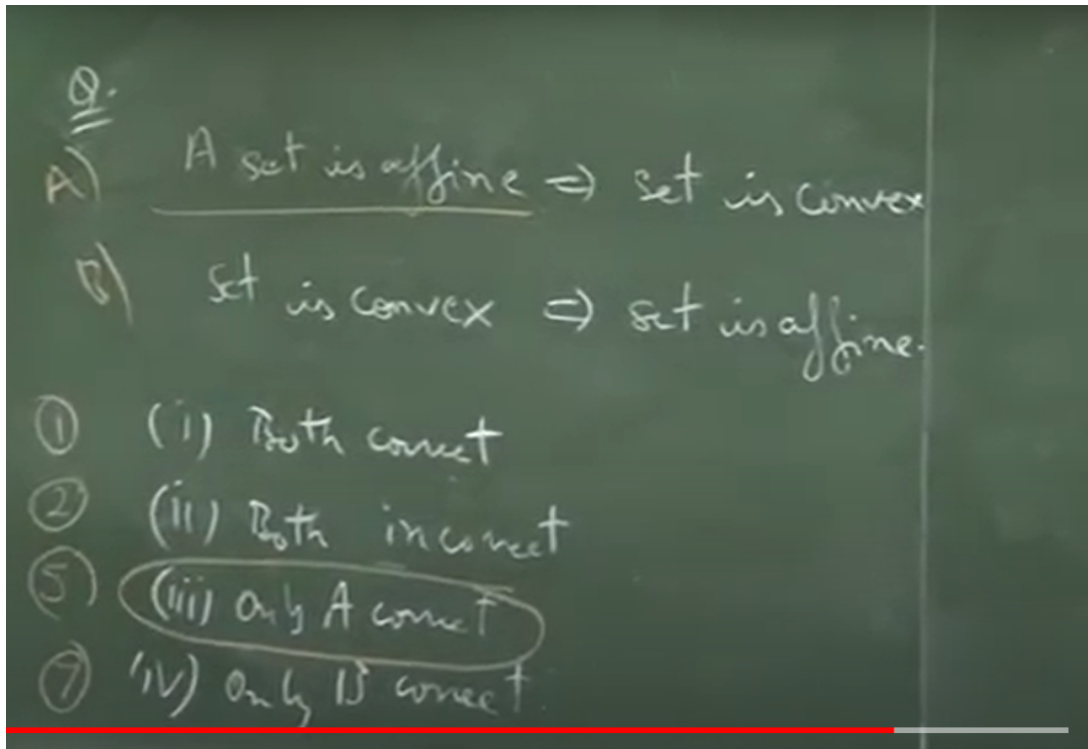 Q.
A) A set is affine ⇒ set is convex
B) Set is convex ⇒ set is affine.
① (i) Both correct
② (ii) Both incorrect
⑤ (iii) Only A correct
⑦ (iv) Only B correct.